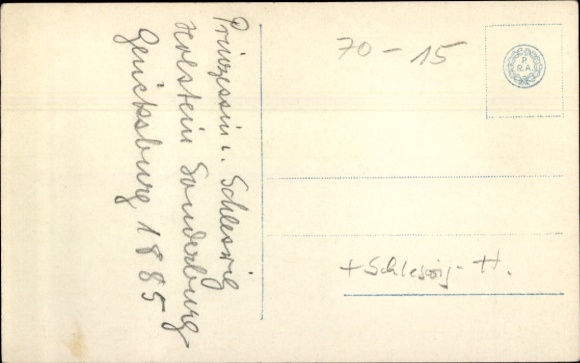 Prinzessin v. Schleswig
Holstein Sonderburg
Glücksburg 1885
70-15
P.
R.A.
+ Schleswig-H.